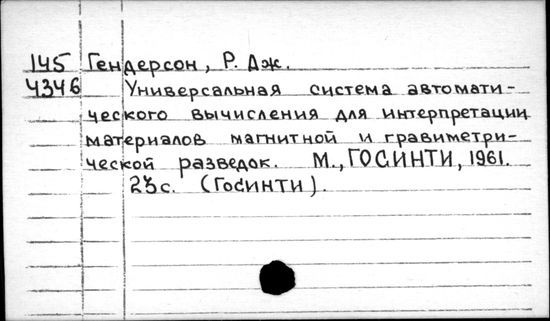 145 Гендерсон, Р. Дж.
4346 Универсальная система автомати-
ческого вычисления для интерпретации
материалов магнитной и гравиметри-
ческой разведок. М., ГОСИНТИ, 1961.
23с. (ГосИНТИ).